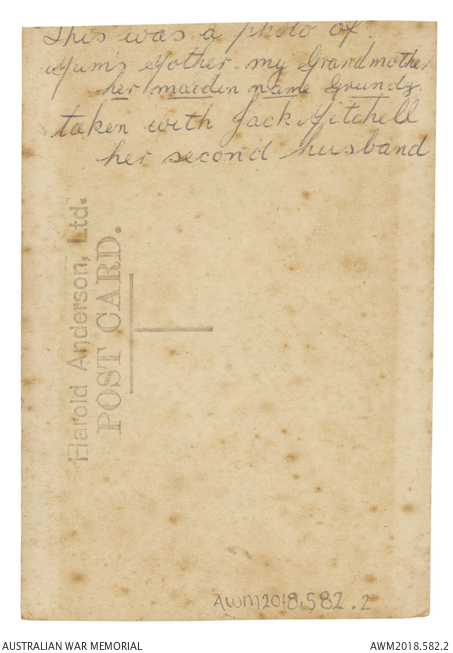 This was a photo of
Mums Mother my Grandmother
her maiden name Grundy.
taken with Jack Mitchell
her second husband
Harold Anderson, Ltd.
POST CARD.
AWM2018.582.2
AUSTRALIAN WAR MEMORIAL
AWM2018.582.2